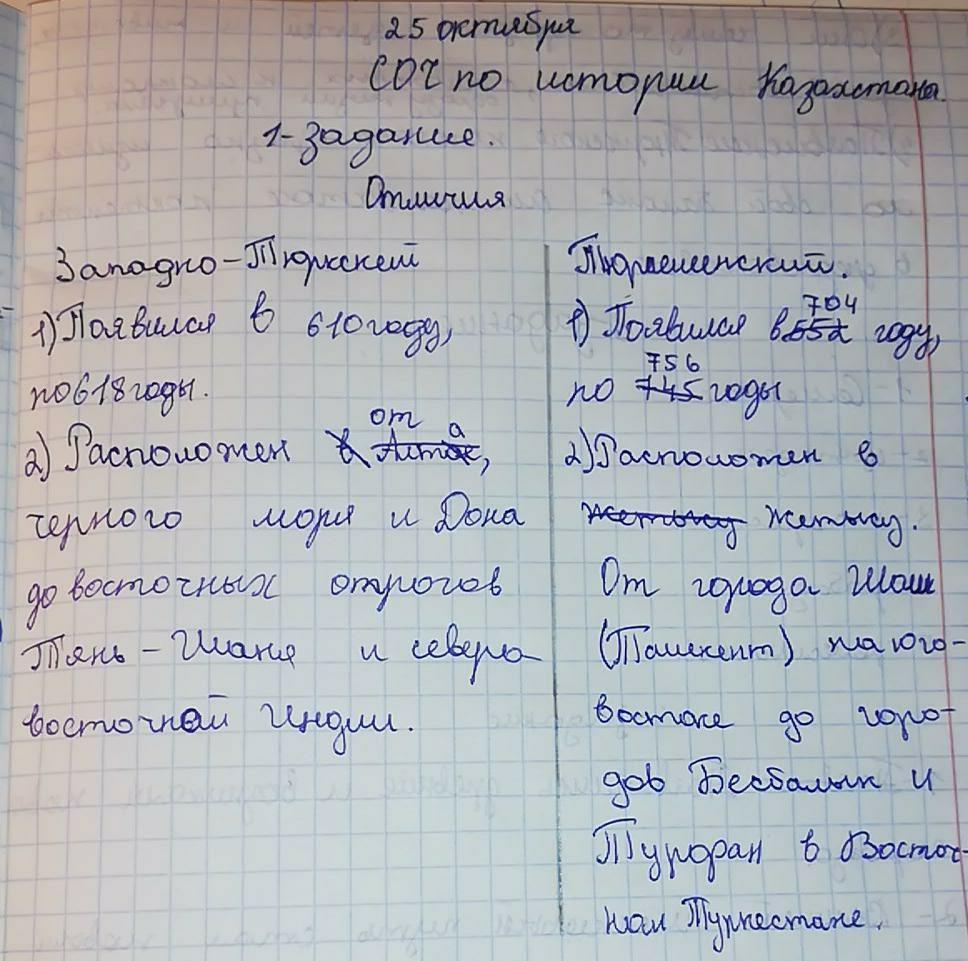 25 октября
СОЧ по истории Казахстана.
1-задание.
Отличия
Западно-Тюркский
1) Появился в 610 году,
по 618 годы.
2) Расположен от
черного моря и Дона
до восточных отрогов
Тянь-Шаня и северо
восточной Индии.
Тюргешский.
1) Появился в 704 году,
по 756 годы
2) Расположен в
Жетысу.
От города Шаш
(Ташкент) на юго-
востоке до горо-
дов Бесбалык и
Турфан в Восточ-
ном Туркестане.